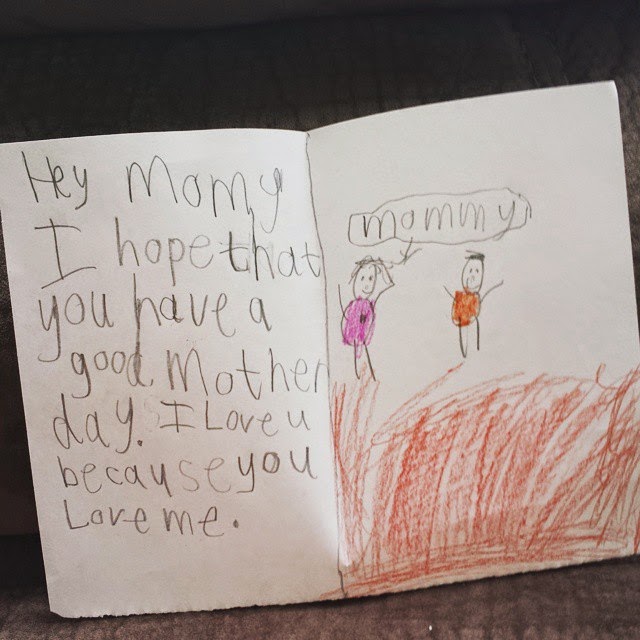 Hey Momy
I hope that
you have a
good Mother
day. I Love u
because you
Love me.
mommy